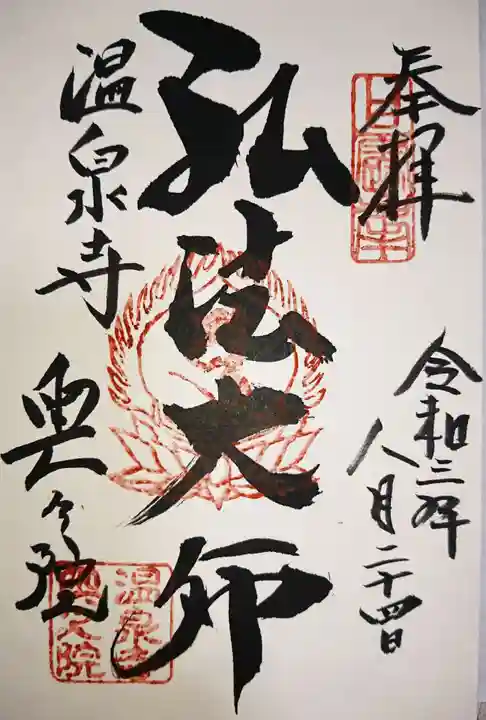 奉拝
令和三年
八月二十四日
弘法大師
温泉寺
奥々院
温泉寺
奥之院